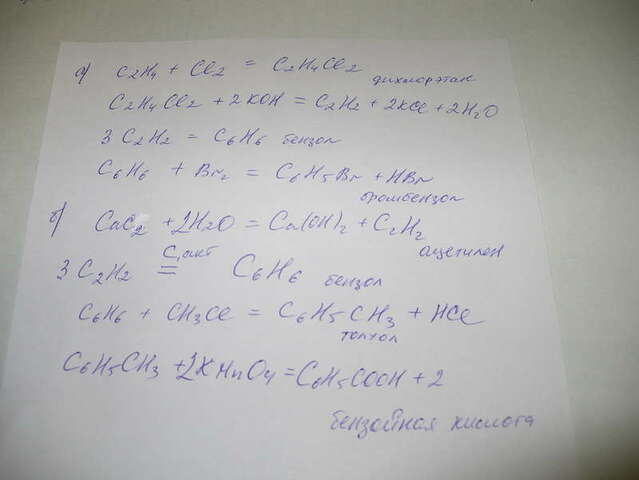 а) C2H4 + Cl2 = C2H4Cl2
дихлорэтан
C2H4Cl2 + 2KOH = C2H2 + 2KCl + 2H2O
3 C2H2 = C6H6 бензол
C6H6 + Br2 = C6H5Br + HBr
бромбензол
б) CaC2 + 2H2O = Ca(OH)2 + C2H2
ацетилен
C, акт
3 C2H2 = C6H6 бензол
C6H6 + CH3Cl = C6H5CH3 + HCl
толуол
C6H5CH3 + 2KMnO4 = C6H5COOH + 2
бензойная кислота